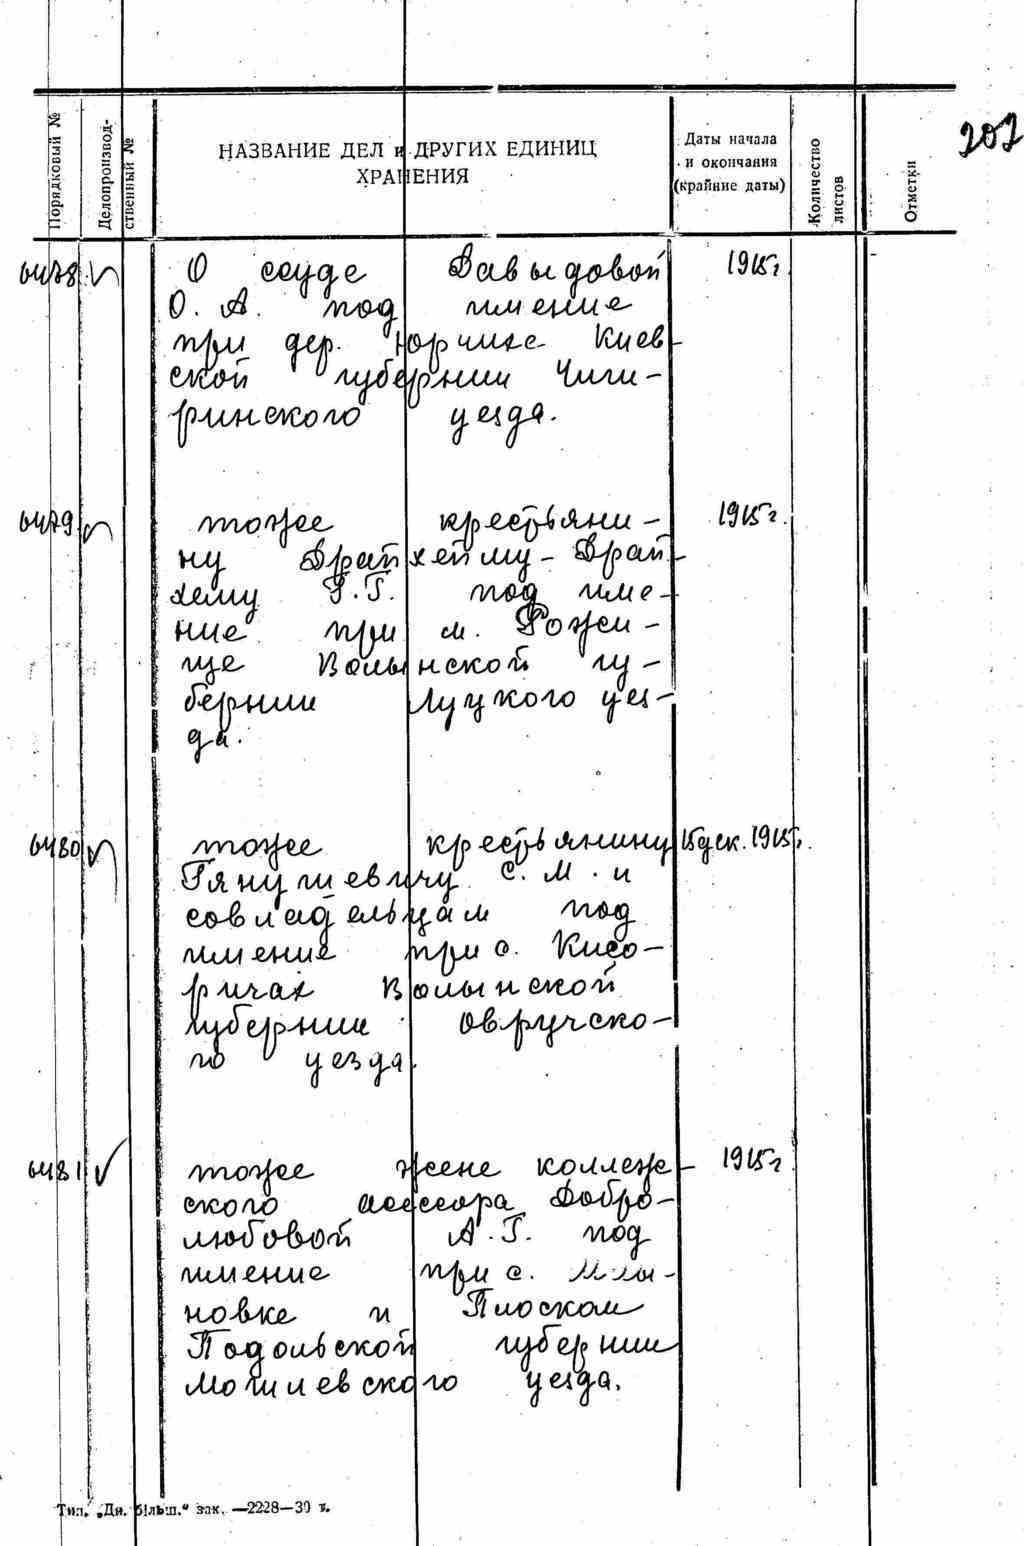 202
Порядковый №
Делопроизвод-
ственный №
НАЗВАНИЕ ДЕЛ и ДРУГИХ ЕДИНИЦ
ХРАНЕНИЯ
Даты начала
и окончания
(крайние даты)
Количество
листов
Отметки
6478 О ссуде Давыдовой 1915г.
О. А. под имение
при дер. Юрчихе Киев-
ской губернии Чиги-
ринского уезда.
6479 тоже крестьяни- 1915г.
ну Драйхейму-Драй-
хему Г. под име-
ние при м. Рожи-
ще Волынской гу-
бернии Луцкого уез-
да.
6480 тоже крестьянину 15дек. 1915г.
Гянушевичу С. М. и
совладельцам под
имение при с. Кисо-
ричах Волынской
губернии Овручско-
го уезда.
6481 тоже жене коллеж- 1915г
ского асессора Добро-
любовой А. Г. под
имение при с. Млы-
новке и Плоском
Подольской губернии
Могилевского уезда.
Тип. „Дн. більш.“ зак. —2228—39 т.